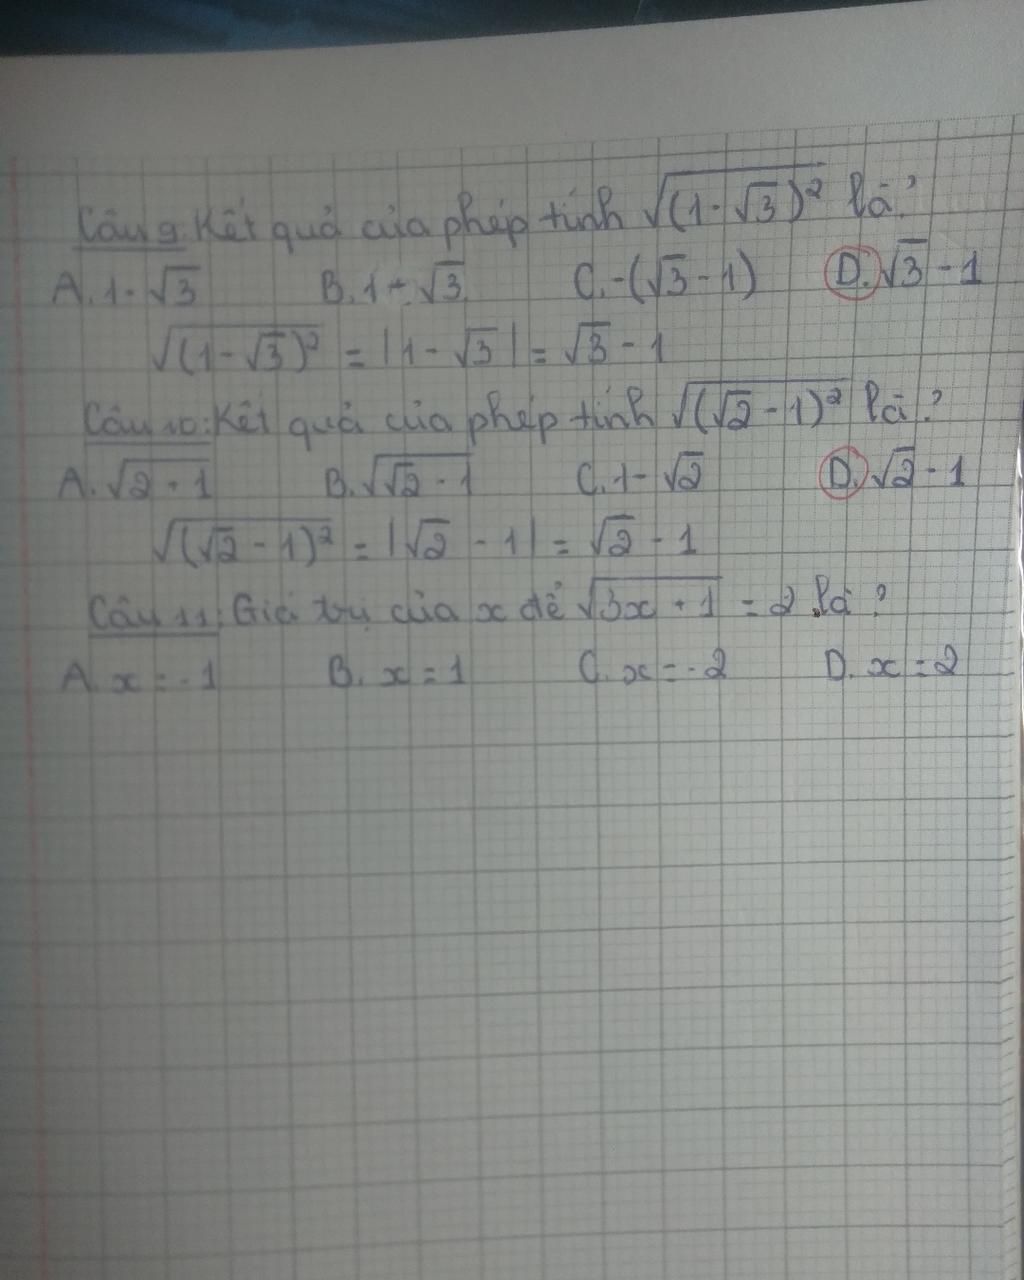 Câu 9: Kết quả của phép tính √(1-√3)² là?
A. 1-√3 B. 1+√3 C. -(√3-1) D. √3-1
√(1-√3)² = |1-√3| = √3-1
Câu 10: Kết quả của phép tính √(√2-1)² là?
A. √2-1 B. √√2-1 C. 1-√2 D. √2-1
√(√2-1)² = |√2-1| = √2-1
Câu 11: Giá trị của x để √3x+1 = 2 là?
A. x=-1 B. x=1 C. x=-2 D. x=2